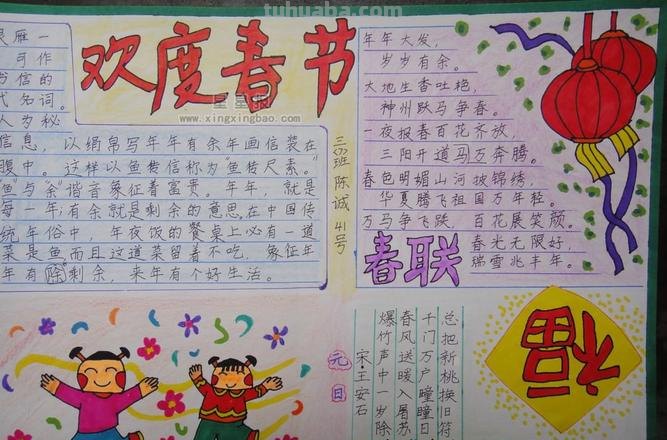 tuhuaba.com
欢度春节
星星报
www.xingxingbao.com
雁一
可作
书信的
代名词。
人为秘
信息，以绢帛写年年有余年画信装在
腹中。这样以鱼传信称为"鱼传尺素。"
鱼"与"余"谐音象征着富贵。年年，就是
每一年；有余就是剩余的意思，在中国传
统年俗中，年夜饭的餐桌上必有一道
菜是鱼而且这道菜留着不吃，象征年
年有除剩余，来年有个好生活。
三(5)班 陈诚 41号
年年大发，
岁岁有余。
大地生香吐艳，
神州跃马争春。
一夜报春百花齐放，
三阳开道马万奔腾。
春色明媚山河披锦绣，
华夏腾飞祖国万年轻。
万马争飞跃，百花展笑颜。
春联
春光无限好，
瑞雪兆丰年。
福
元日
宋·王安石
爆竹声中一岁除
春风送暖入屠苏
千门万户曈曈日
总把新桃换旧符